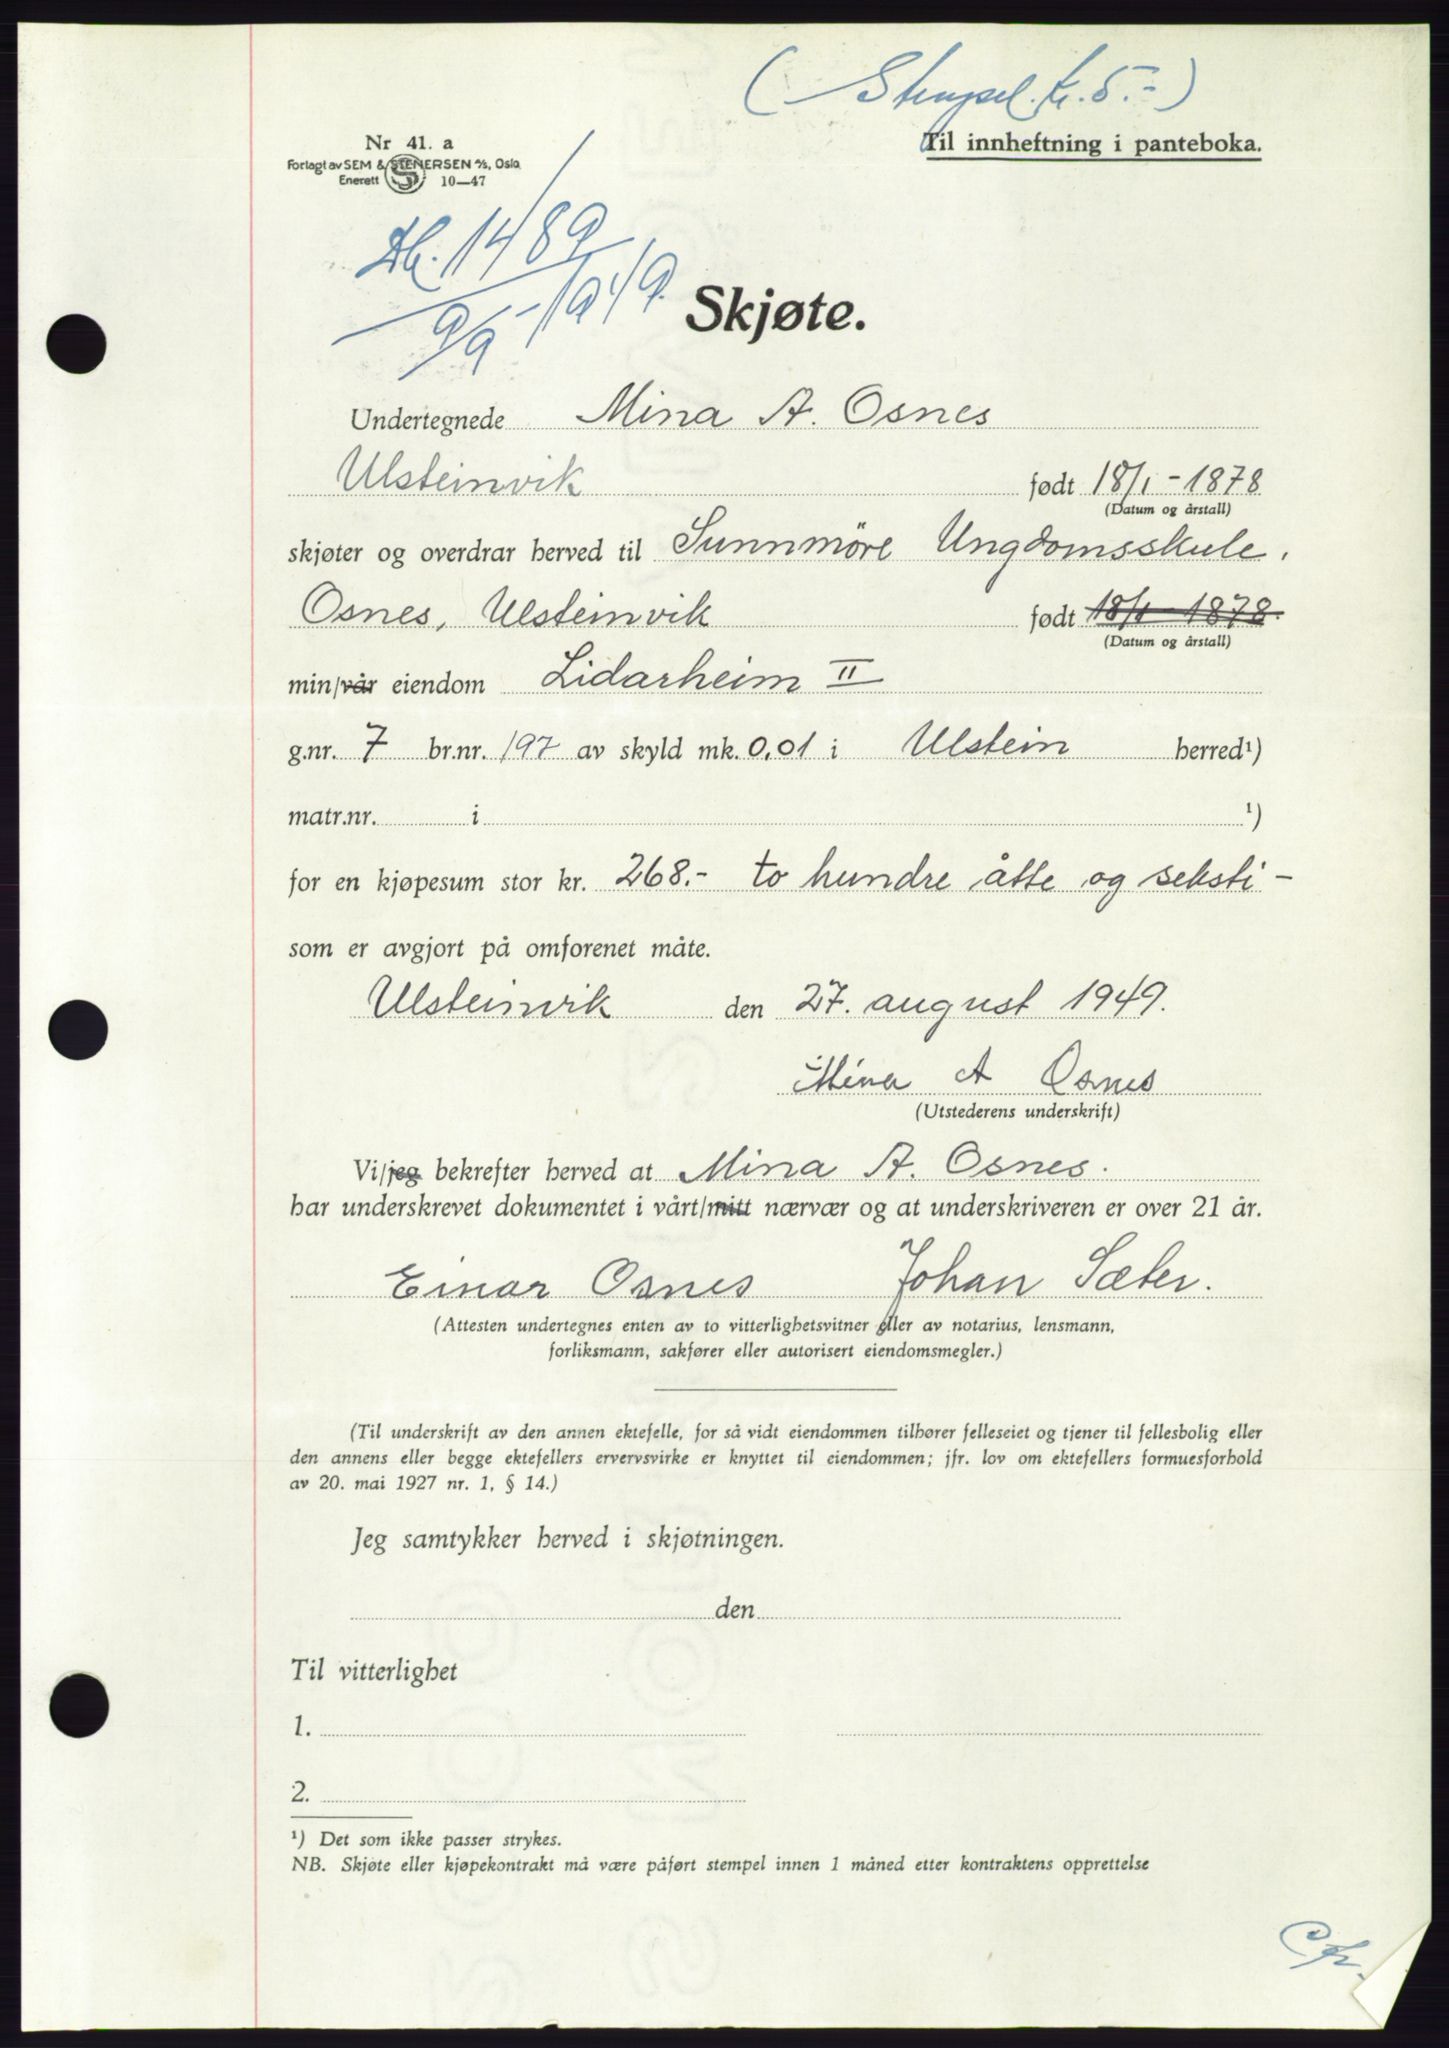 (Stempel. kr. 5.-)
Nr 41. a
Forlagt av SEM & STENERSEN A/S, Oslo
Enerett 10—47
Til innheftning i panteboka.
Db. 1489
9/9-1949.
Skjøte.
Undertegnede Mina A. Osnes
Ulsteinvik født 18/1-1878
(Datum og årstall)
skjøter og overdrar herved til Sunnmöre Ungdomsskule,
Osnes, Ulsteinvik født 18/1 1878.
(Datum og årstall)
min/vår eiendom Lidarheim II
g.nr. 7 br.nr. 197 av skyld mk. 0,01 i Ulstein herred¹)
matr.nr. i ¹)
for en kjøpesum stor kr. 268.- to hundre åtte og seksti -
som er avgjort på omforenet måte.
Ulsteinvik den 27. august 1949.
Mina A Osnes
(Utstederens underskrift)
Vi/jeg bekrefter herved at Mina A. Osnes.
har underskrevet dokumentet i vårt/mitt nærvær og at underskriveren er over 21 år.
Einar Osnes Johan Sæter.
(Attesten undertegnes enten av to vitterlighetsvitner eller av notarius, lensmann,
forliksmann, sakfører eller autorisert eiendomsmegler.)
(Til underskrift av den annen ektefelle, for så vidt eiendommen tilhører felleseiet og tjener til fellesbolig eller
den annens eller begge ektefellers ervervsvirke er knyttet til eiendommen; jfr. lov om ektefellers formuesforhold
av 20. mai 1927 nr. 1, § 14.)
Jeg samtykker herved i skjøtningen.
den
Til vitterlighet
1.
2.
¹) Det som ikke passer strykes.
NB. Skjøte eller kjøpekontrakt må være påført stempel innen 1 måned etter kontraktens opprettelse